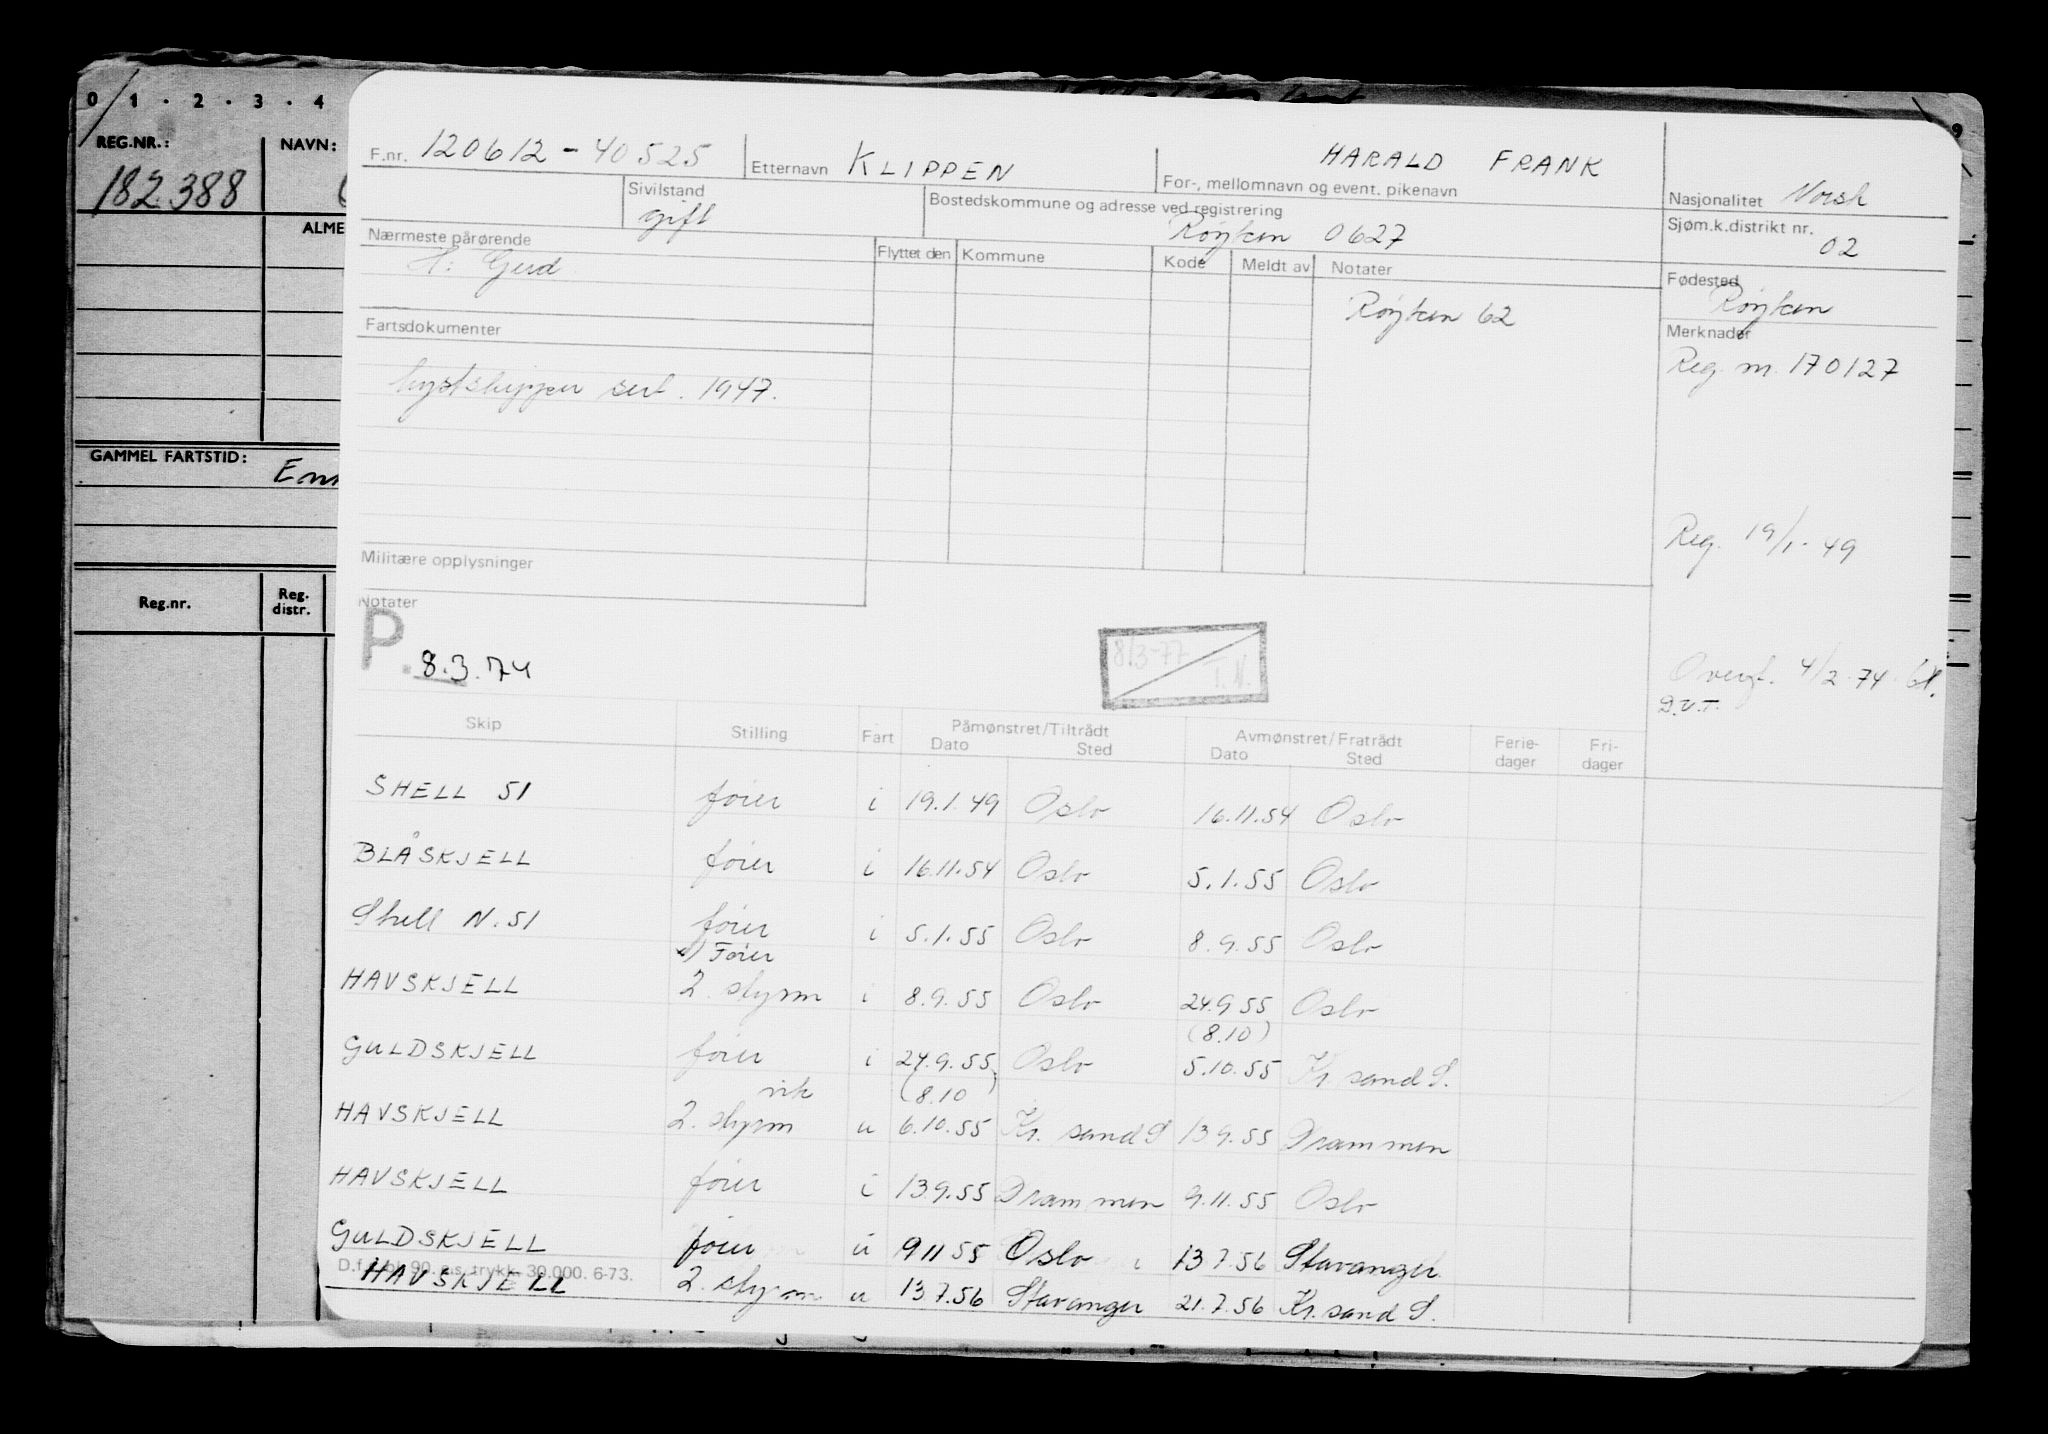 0 / 1 · 2 · 3 · 4
9
REG.NR.:
NAVN:
182388
ALME
GAMMEL FARTSTID:
Reg.nr.
Reg. distr.
F.nr. 120612-40525
Etternavn KLIPPEN
HARALD FRANK
For-, mellomnavn og event. pikenavn
Nasjonalitet Norsk
Sivilstand
gift
Bostedskommune og adresse ved registrering
Røyken 0627
Sjøm.k.distrikt nr.
02
Nærmeste pårørende
H: Gerd
Flyttet den
Kommune
Kode
Meldt av
Notater
Røyken 62
Fødested
Røyken
Merknader
Reg. nr. 170127
Fartsdokumenter
kystskipper sert. 1947.
Reg. 19/1-49
Militære opplysninger
Notater
P. 8.3.74
8/3-77
T.N.
Overf. 4/2-74
D.V.T.
Skip
Stilling
Fart
Påmønstret/Tiltrådt
Dato Sted
Avmønstret/Fratrådt
Dato Sted
Ferie-dager
Fri-dager
SHELL 51 fører i 19.1.49 Oslo 16.11.54 Oslo
BLÅSKJELL fører i 16.11.54 Oslo 5.1.55 Oslo
Shell N. 51 fører i 5.1.55 Oslo 8.9.55 Oslo
Fører
HAVSKJELL 2. styrm i 8.9.55 Oslo 24.9.55 Oslo
(8.10)
GULDSKJELL fører i 24.9.55 Oslo 5.10.55 Kr. sand S.
vik (8.10)
HAVSKJELL 2. styrm u 6.10.55 Kr. sand S 13.9.55 Drammen
HAVSKJELL fører i 13.9.55 Drammen 9.11.55 Oslo
GULDSKJELL fører u 9 11 55 Oslo 13.7.56 Stavanger
D.f. bl. 90. a.s trykk. 30.000. 6-73.
HAVSKJELL 2. styrm u 13.7.56 Stavanger 21.7.56 Kr. sand S.